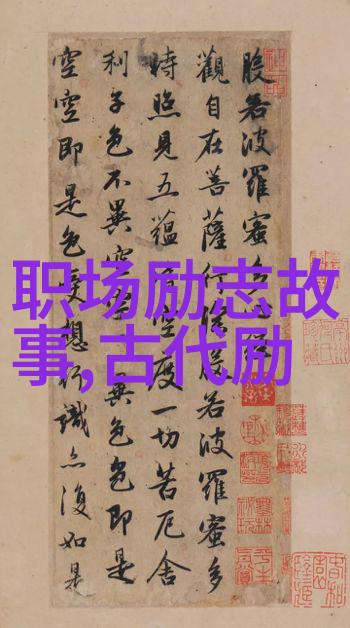 职场励志故
事,古代励
般若波羅蜜多心經
觀自在菩薩行深般若波羅蜜多
時照見五蘊皆空度一切苦厄舍
利子色不異空空不異色色即是
空空即是色受想行識亦復如是